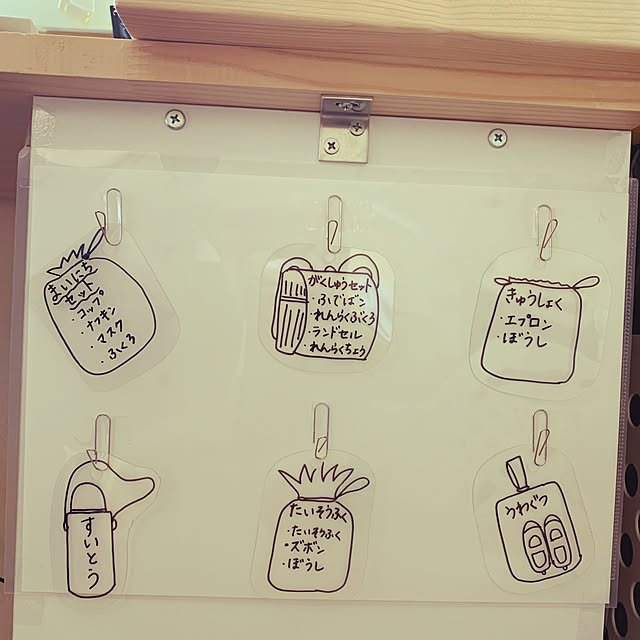 まいにち
セット
・コップ
・ナフキン
・マスク
・ふくろ
がくしゅうセット
・ふでばこ
・れんらくぶくろ
・ランドセル
・れんらくちょう
きゅうしょく
・エプロン
・ぼうし
すいとう
たいそうふく
・たいそうふく
・ズボン
・ぼうし
うわぐつ